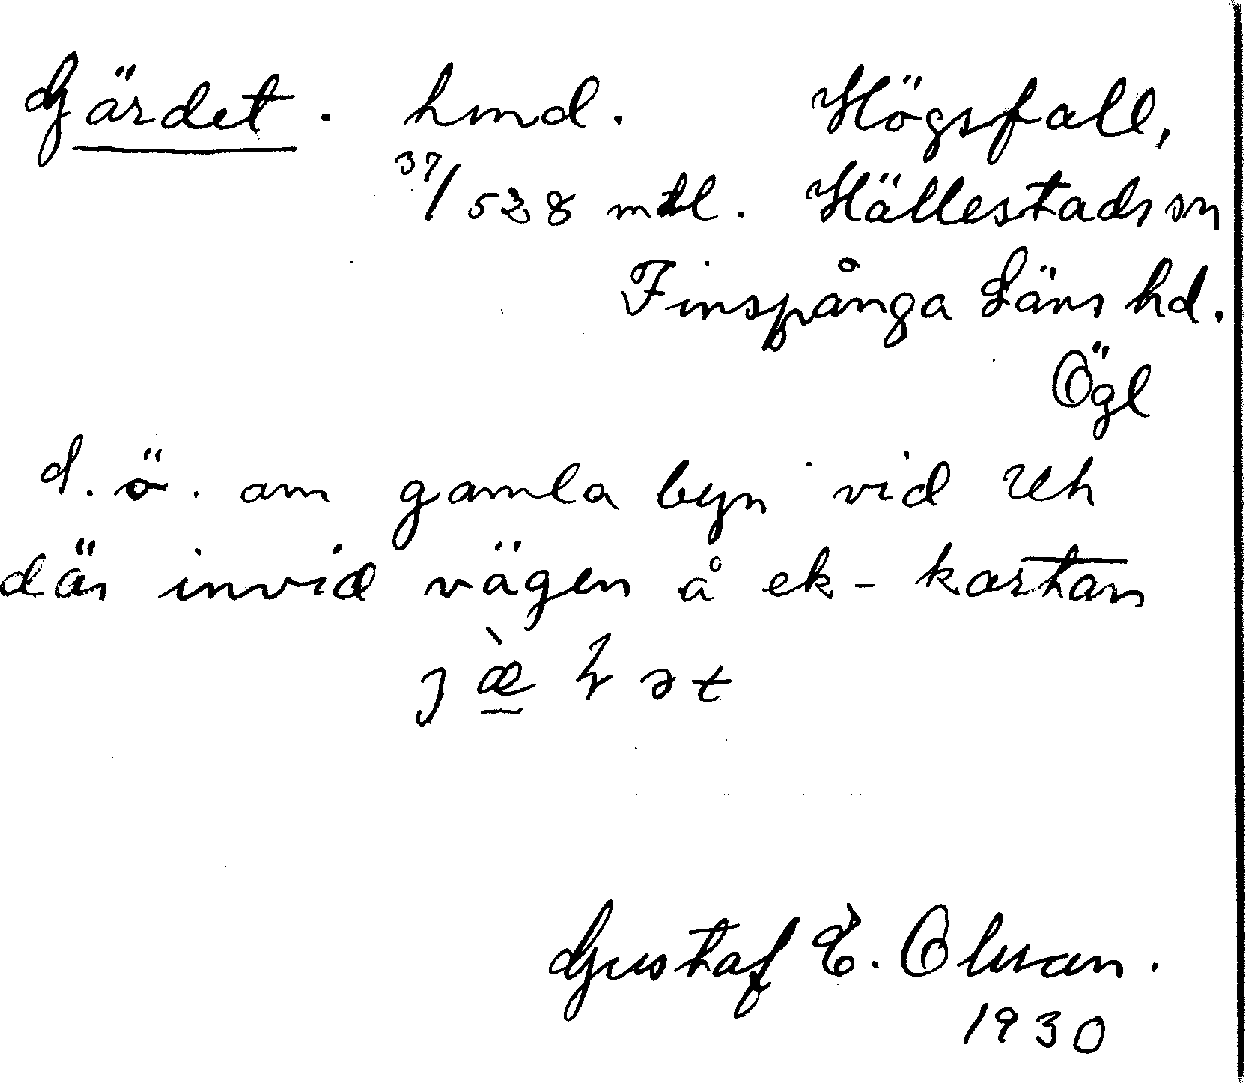 Gärdet. hmd. Högsfall,
37/528 mtl. Hällestads sn
Finspånga Läns hd.
Ögl
d. ö. om gamla byn vid
där invid vägen å ek-kartan
Gustaf E. Olsson.
1930